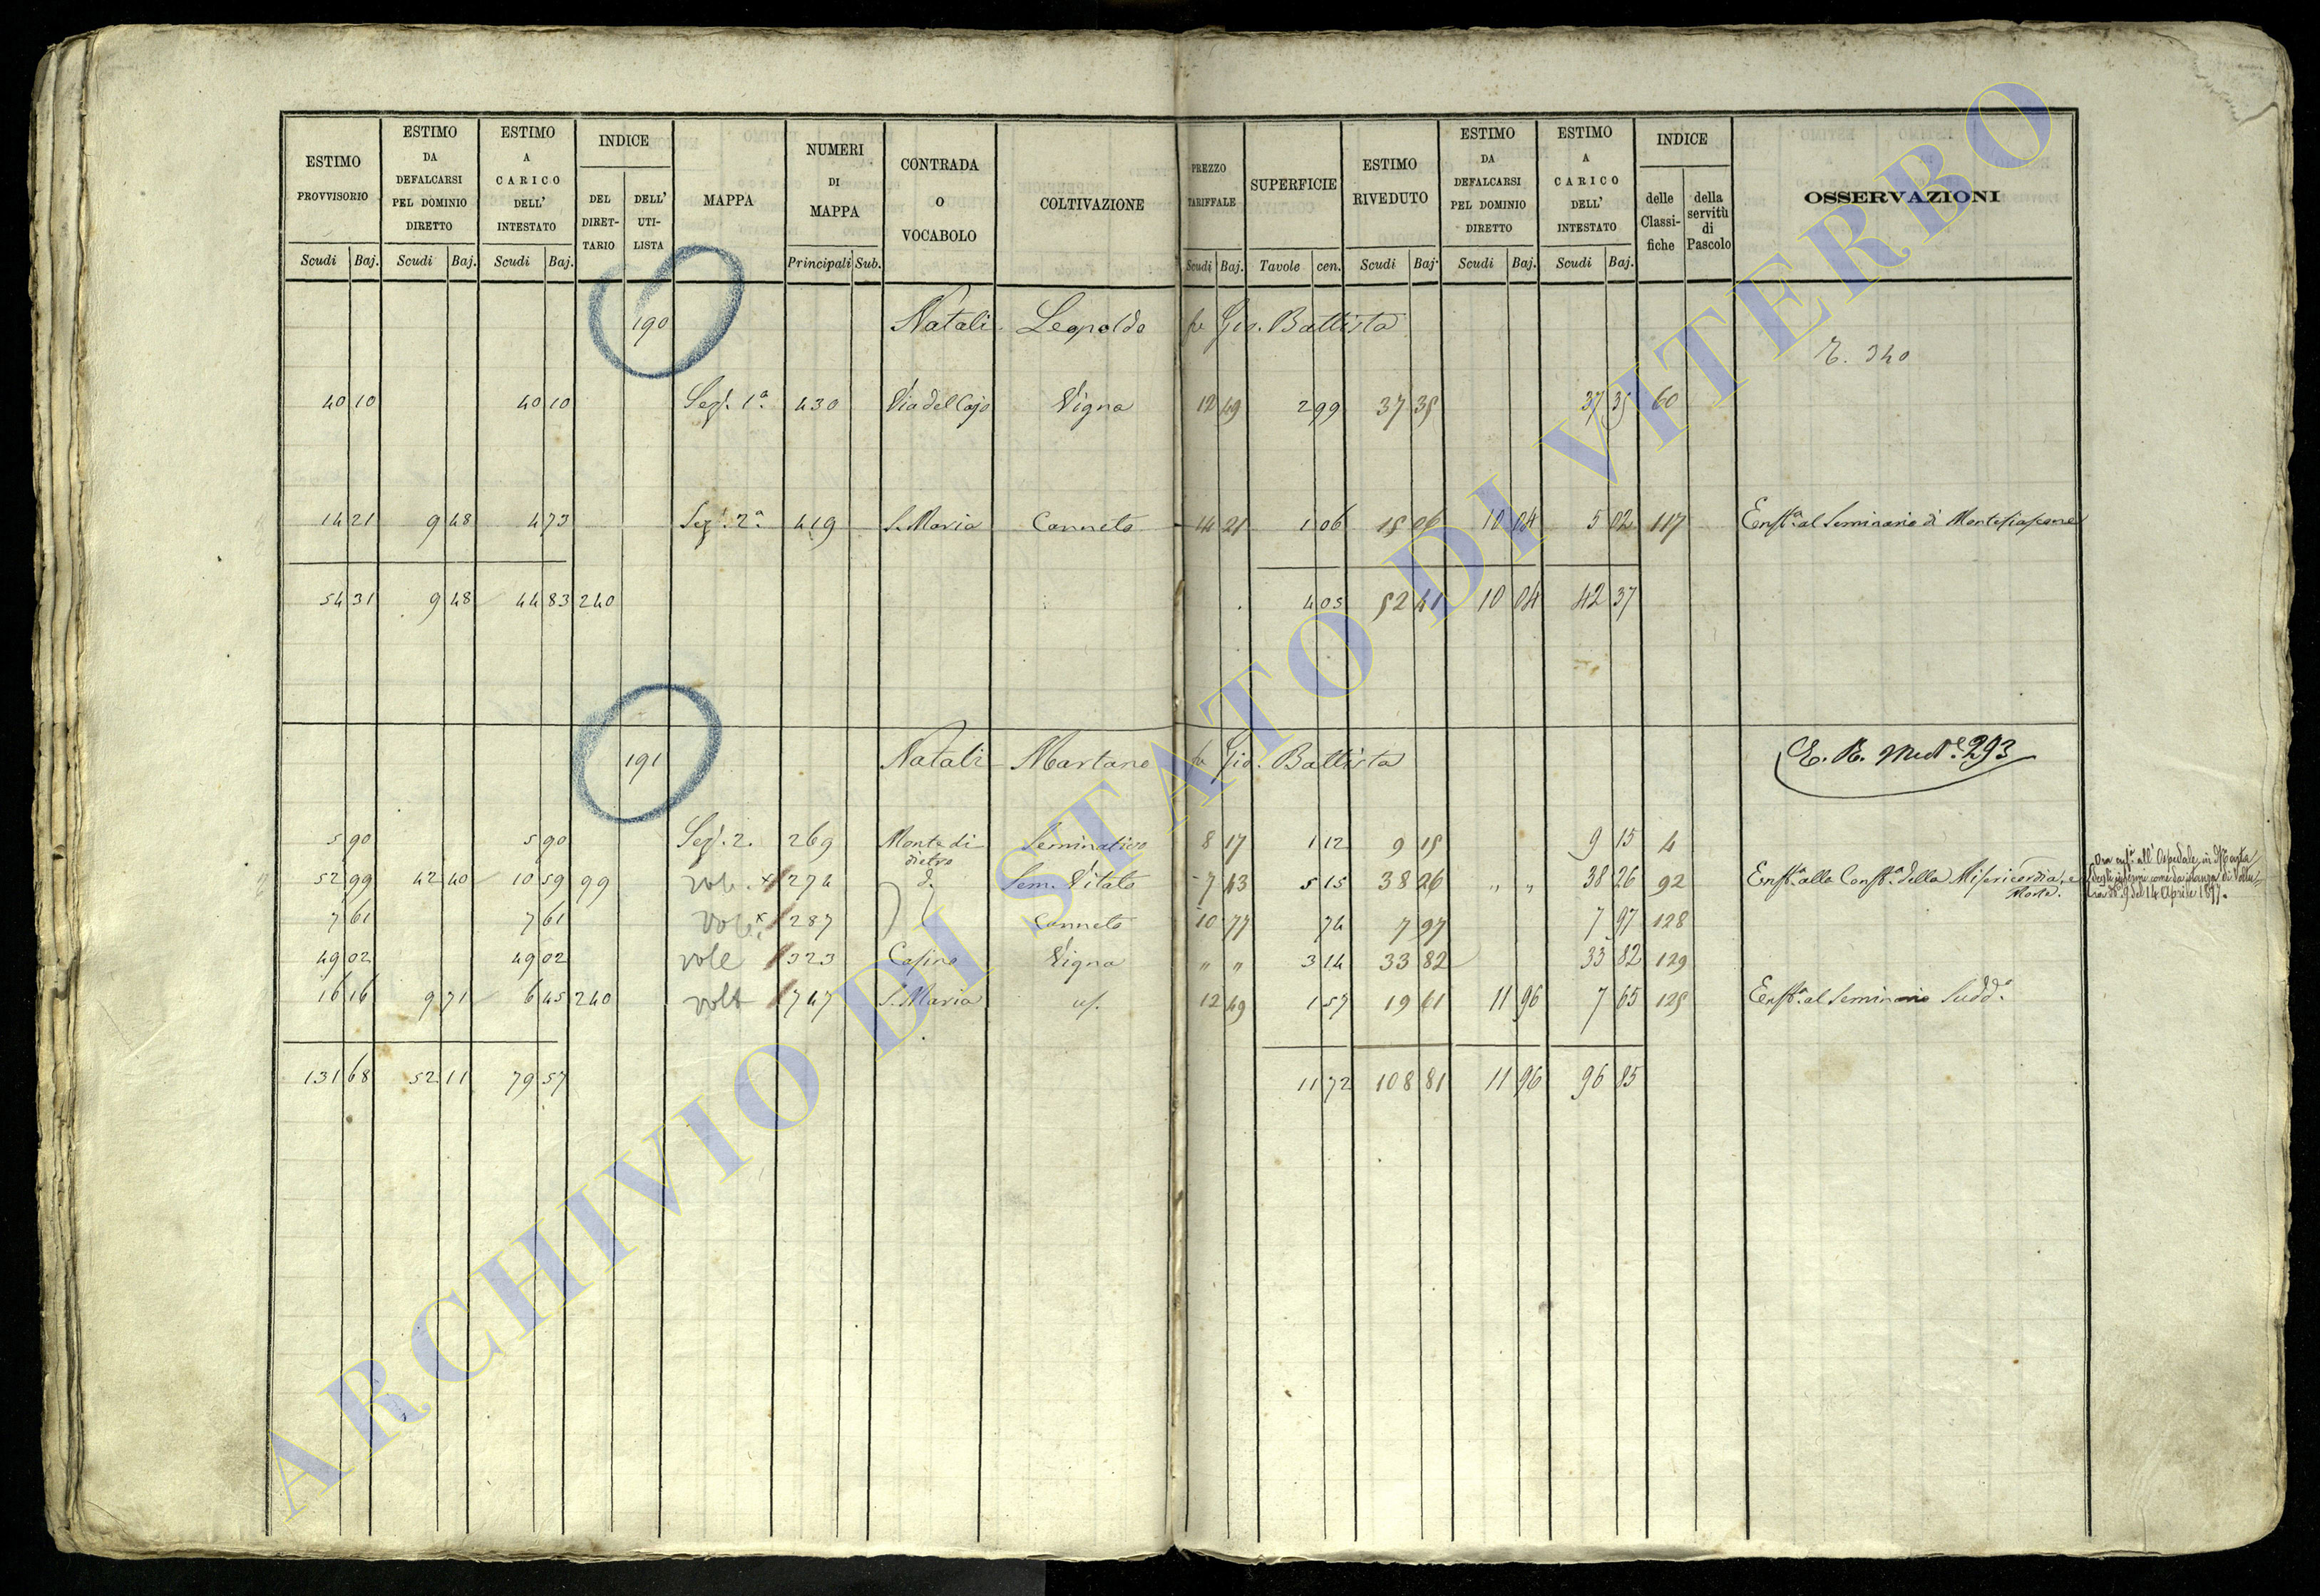 ESTIMO PROVVISORIO | ESTIMO DA DEFALCARSI PEL DOMINIO DIRETTO | ESTIMO A CARICO DELL' INTESTATO | INDICE | MAPPA | NUMERI DI MAPPA | CONTRADA O VOCABOLO | COLTIVAZIONE | PREZZO TARIFFALE | SUPERFICIE | ESTIMO RIVEDUTO | ESTIMO DA DEFALCARSI PEL DOMINIO DIRETTO | ESTIMO A CARICO DELL' INTESTATO | INDICE | OSSERVAZIONI
DEL DIRETTARIO | DELL' UTILISTA | delle Classifiche | della servitù di Pascolo
Scudi | Baj. | Scudi | Baj. | Scudi | Baj. | Principali | Sub. | Scudi | Baj. | Tavole | cen. | Scudi | Baj. | Scudi | Baj. | Scudi | Baj.
190 Natali Leopoldo fu Gio. Battista
E. 340
40 10 | 40 10 | Sez. 1ª | 430 | Via del Cajo | Vigna | 12 49 | 2 99 | 37 35 | 37 35 | 60
14 21 | 9 48 | 4 73 | Sez. 2ª | 419 | S. Maria | Canneto | 14 21 | 1 06 | 15 06 | 10 04 | 5 02 | 117 | Enfta. al Seminario di Montefiascone
54 31 | 9 48 | 44 83 | 240 | 4 05 | 52 41 | 10 04 | 42 37
191 Natali Martano fu Gio. Battista
5 90 | 5 90 | Sez. 2. | 269 | Monte di dietro | Seminativo | 8 17 | 1 12 | 9 15 | 9 15 | 4
52 99 | 42 40 | 10 59 | 99 | 274 | d. | Sem. Vitato | 7 43 | 5 15 | 38 26 | " " | 38 26 | 92 | Enfta. alla Confta. della Misericordia, e Morte.
Ora enfi. all' Ospedale in Marta
degli infermi come da istanza di Voltura
N° 9 del 14 Aprile 1897.
7 61 | 7 61 | 287 | Canneto | 10 77 | 74 | 7 97 | 7 97 | 128
49 02 | 49 02 | 323 | Casino | Vigna | " " | 3 14 | 33 82 | 33 82 | 129
16 16 | 9 71 | 6 45 | 240 | 747 | S. Maria | 12 49 | 1 57 | 19 61 | 11 96 | 7 65 | 125 | Enfta. al Seminario Sudd.°
131 68 | 52 11 | 79 57 | 11 72 | 108 81 | 11 96 | 96 85
ARCHIVIO DI STATO DI VITERBO